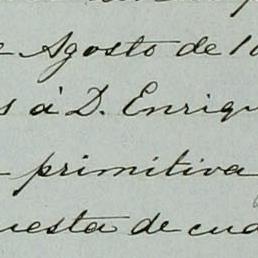 e Agosto de 18
s á D. Enriqu
primitiva
uesta de cua